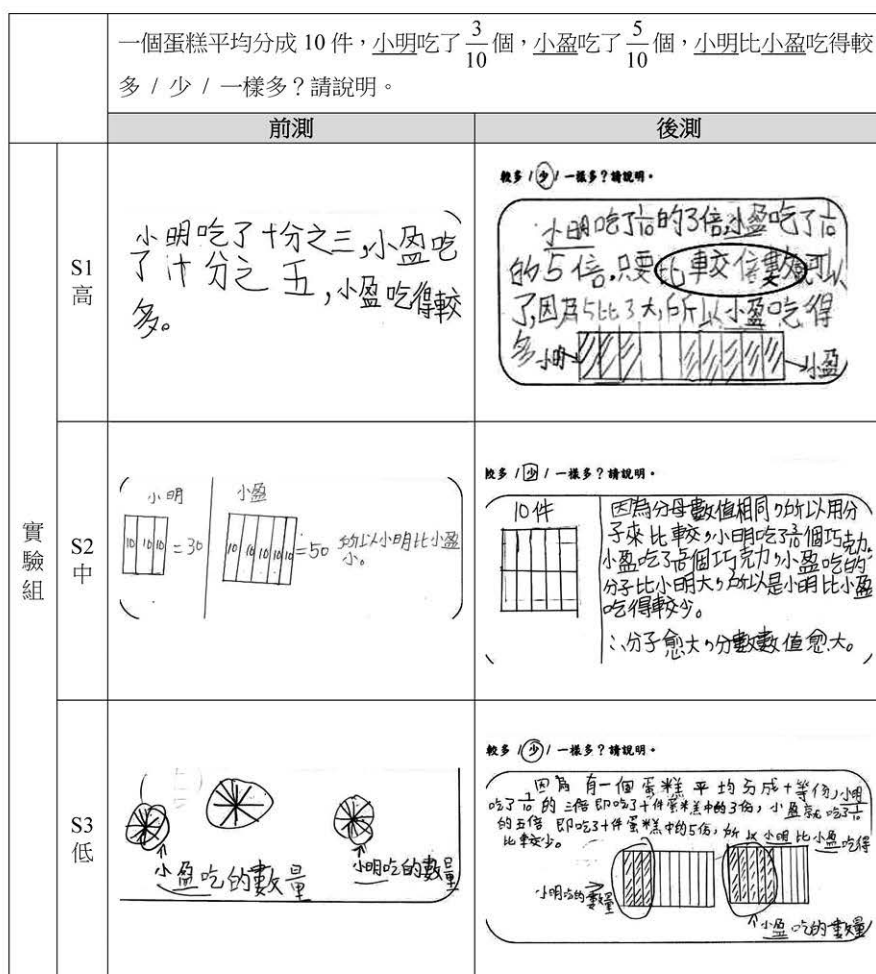 一個蛋糕平均分成 10 件，小明吃了 3/10 個，小盈吃了 5/10 個，小明比小盈吃得較
多 / 少 / 一樣多？請說明。
前測
後測
實驗組
S1
高
小明吃了十分之三,小盈吃
了十分之五,小盈吃得較
多。
較多 / 少 / 一樣多？請說明。
小明吃了1/10的3倍,小盈吃了1/10
的5倍.只要比較倍數就可以
了,因為5比3大,所以小盈吃得
多
小明
小盈
S2
中
小明
小盈
10 10 10 = 30
10 10 10 10 10 = 50
所以小明比小盈
小。
較多 / 少 / 一樣多？請說明。
10件
因為分母數值相同,所以用分
子來比較,小明吃了 個巧克力,
小盈吃了 個巧克力,小盈吃的
分子比小明大,所以是小明比小盈
吃得較少。
∴分子愈大,分數數值愈大。
S3
低
小盈吃的數量
小明吃的數量
較多 / 少 / 一樣多？請說明。
因為有一個蛋糕平均分成十等份,小明
吃了1/10的三倍即吃了十件蛋糕中的3份,小盈就吃了1/10
的五倍即吃了十件蛋糕中的5份,所以小明比小盈吃得
比較少。
小明吃的數量
小盈吃的數量